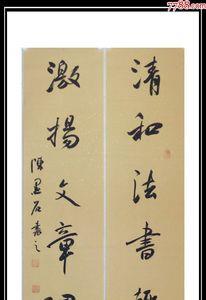 7788.com
清和法書
激揚文章
陳墨石書之